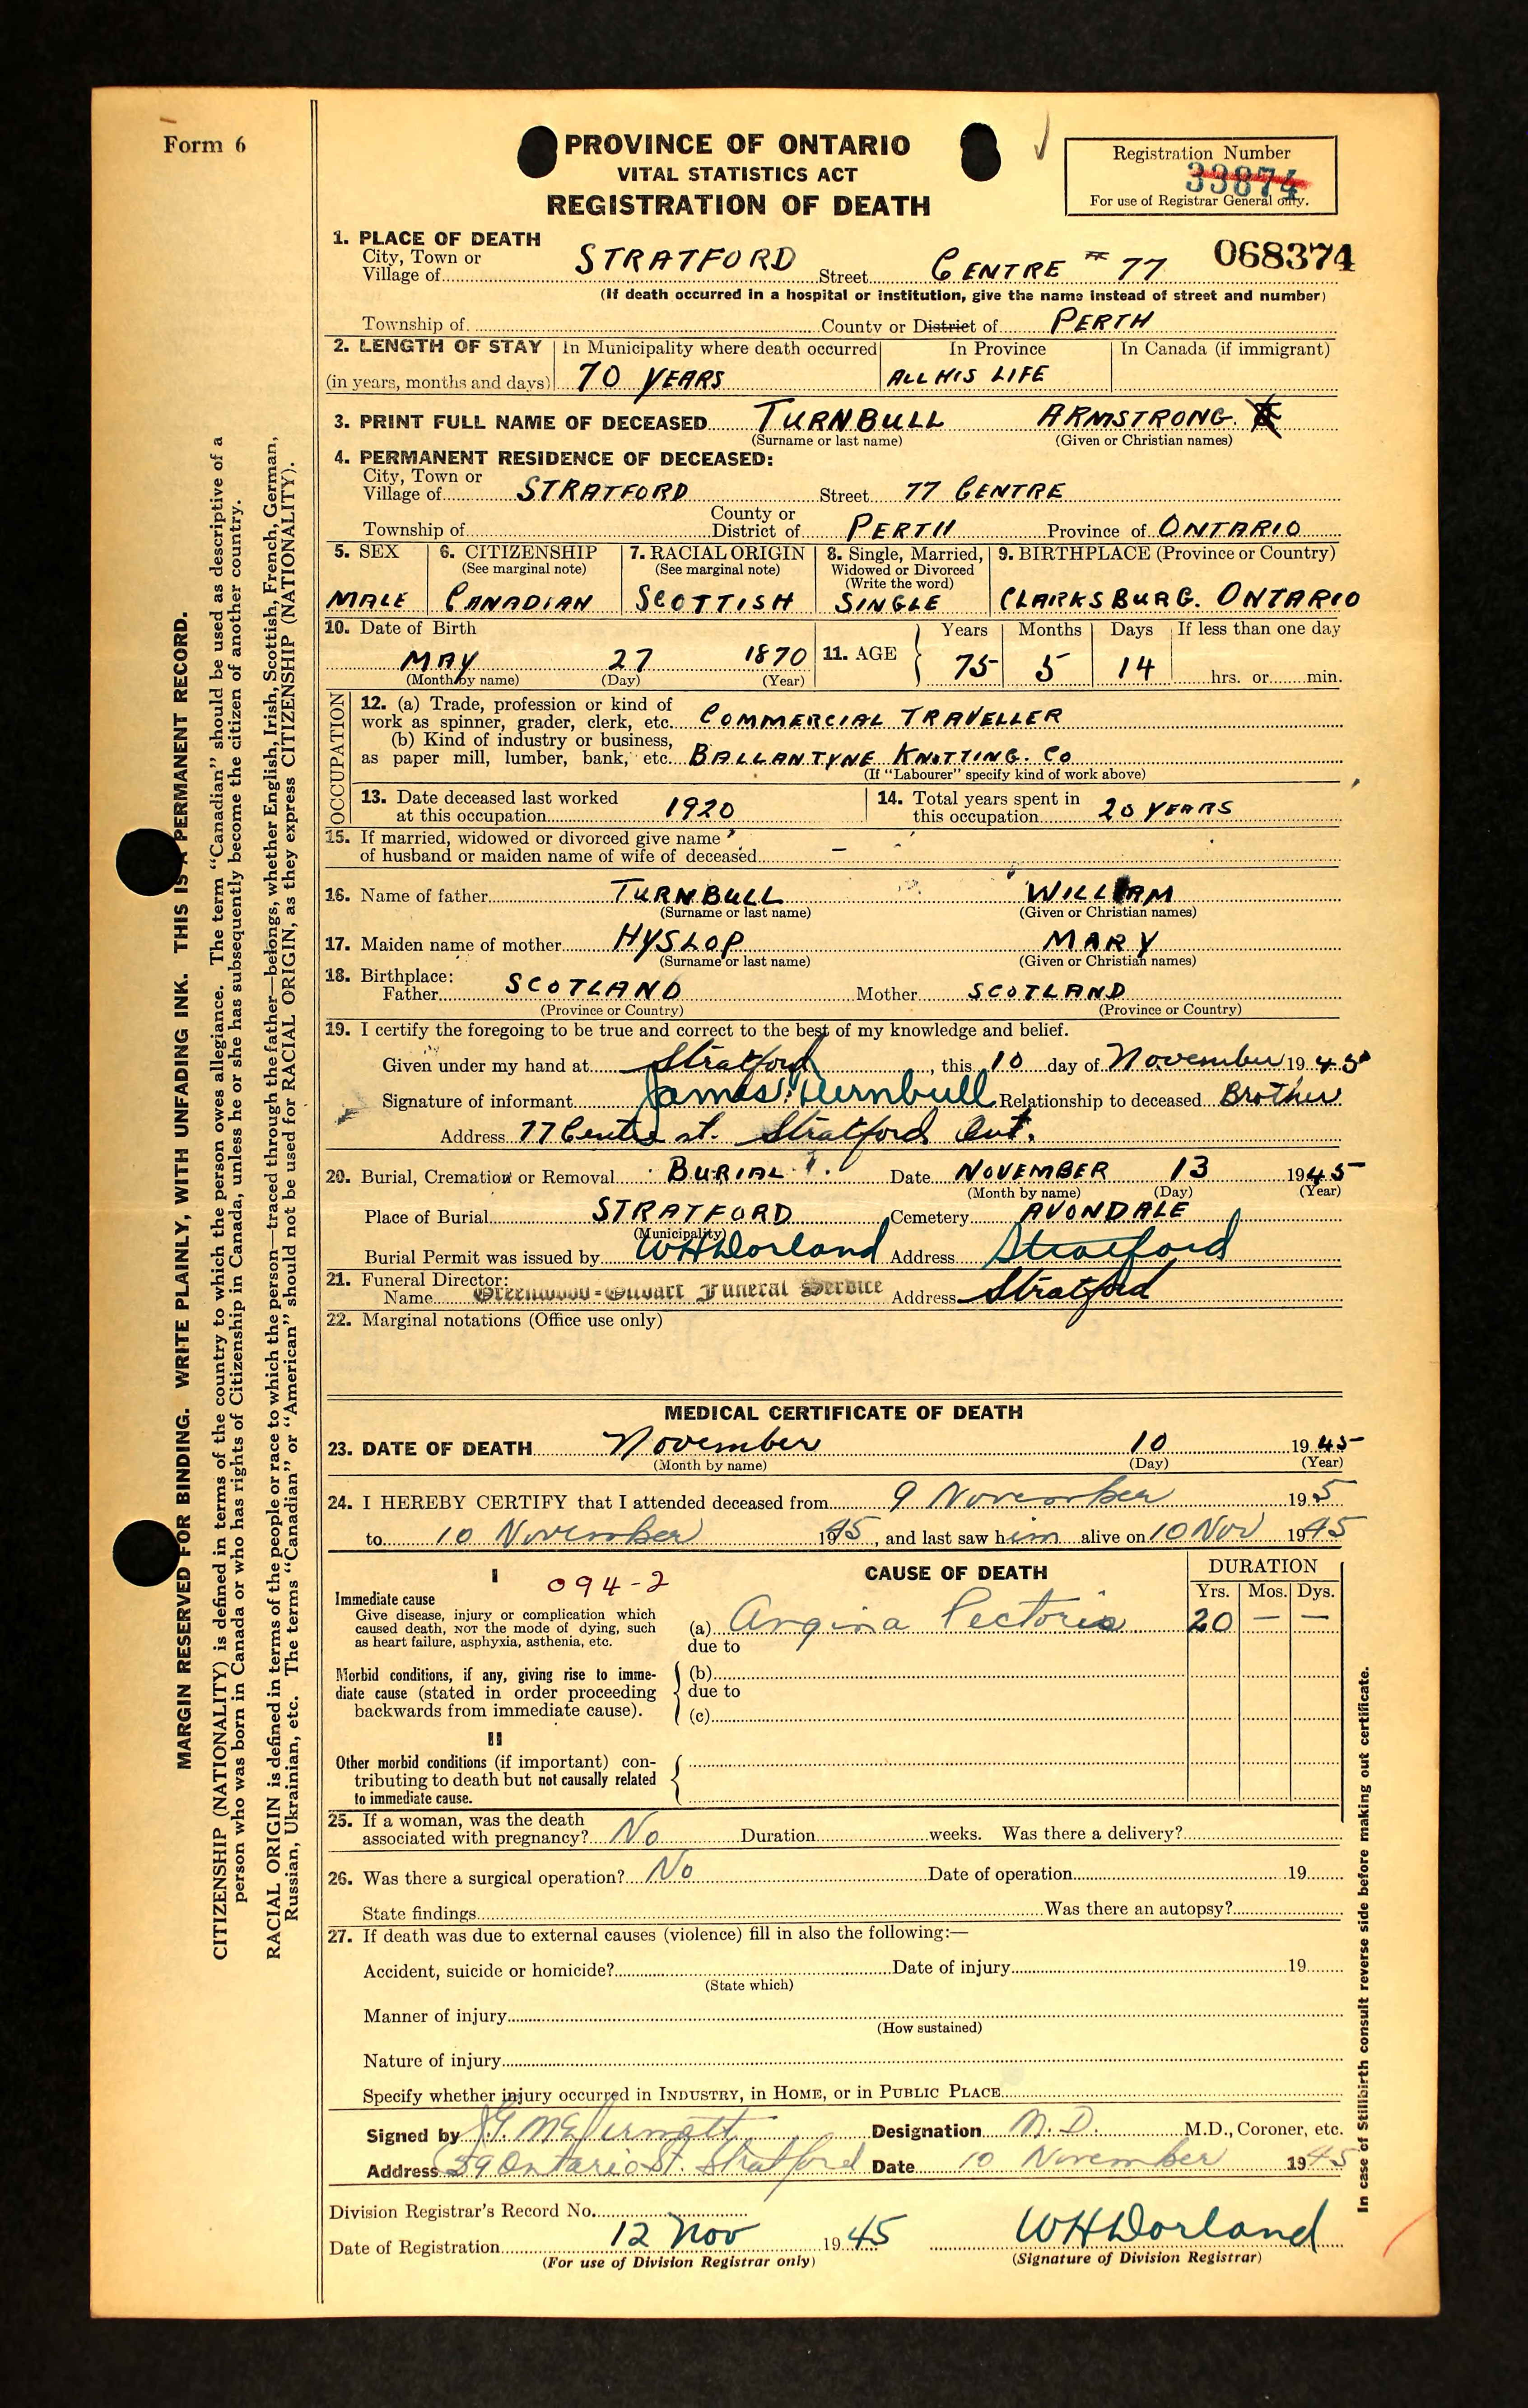 Form 6
PROVINCE OF ONTARIO
VITAL STATISTICS ACT
REGISTRATION OF DEATH
Registration Number
33874
For use of Registrar General only.
068374
1. PLACE OF DEATH
City, Town or
Village of STRATFORD Street CENTRE # 77
(If death occurred in a hospital or institution, give the name instead of street and number)
Township of County or District of PERTH
2. LENGTH OF STAY In Municipality where death occurred In Province In Canada (if immigrant)
(in years, months and days) 70 YEARS ALL HIS LIFE
3. PRINT FULL NAME OF DECEASED TURNBULL ARMSTRONG.
(Surname or last name) (Given or Christian names)
4. PERMANENT RESIDENCE OF DECEASED:
City, Town or
Village of STRATFORD Street 77 CENTRE
County or
Township of District of PERTH Province of ONTARIO
5. SEX 6. CITIZENSHIP 7. RACIAL ORIGIN 8. Single, Married, 9. BIRTHPLACE (Province or Country)
(See marginal note) (See marginal note) Widowed or Divorced
(Write the word)
MALE CANADIAN SCOTTISH SINGLE CLARKSBURG. ONTARIO
10. Date of Birth Years Months Days If less than one day
MAY 27 1870 11. AGE 75 5 14 hrs. or min.
(Month by name) (Day) (Year)
OCCUPATION
12. (a) Trade, profession or kind of
work as spinner, grader, clerk, etc. COMMERCIAL TRAVELLER
(b) Kind of industry or business,
as paper mill, lumber, bank, etc. BALLANTYNE KNITTING. CO
(If "Labourer" specify kind of work above)
13. Date deceased last worked 14. Total years spent in
at this occupation 1920 this occupation 20 YEARS
15. If married, widowed or divorced give name
of husband or maiden name of wife of deceased –
16. Name of father TURNBULL WILLIAM
(Surname or last name) (Given or Christian names)
17. Maiden name of mother HYSLOP MARY
(Surname or last name) (Given or Christian names)
18. Birthplace:
Father SCOTLAND Mother SCOTLAND
(Province or Country) (Province or Country)
19. I certify the foregoing to be true and correct to the best of my knowledge and belief.
Given under my hand at Stratford, this 10 day of November 1945
Signature of informant James Turnbull Relationship to deceased Brother
Address 77 Centre st. Stratford Ont.
20. Burial, Cremation or Removal BURIAL Date NOVEMBER 13 1945
(Month by name) (Day) (Year)
Place of Burial STRATFORD Cemetery AVONDALE
(Municipality)
Burial Permit was issued by WHDorland Address Stratford
21. Funeral Director:
Name Funeral Service Address Stratford
22. Marginal notations (Office use only)
MEDICAL CERTIFICATE OF DEATH
23. DATE OF DEATH November 10 1945
(Month by name) (Day) (Year)
24. I HEREBY CERTIFY that I attended deceased from 9 November 195
to 10 November 1945, and last saw him alive on 10 Nov 1945
I 094-2 CAUSE OF DEATH DURATION
Immediate cause Yrs. Mos. Dys.
Give disease, injury or complication which
caused death, NOT the mode of dying, such (a) Angina Pectoris 20 – –
as heart failure, asphyxia, asthenia, etc. due to
Morbid conditions, if any, giving rise to imme- (b)
diate cause (stated in order proceeding due to
backwards from immediate cause). (c)
II
Other morbid conditions (if important) con-
tributing to death but not causally related
to immediate cause.
25. If a woman, was the death
associated with pregnancy? No Duration weeks. Was there a delivery?
26. Was there a surgical operation? No Date of operation 19
State findings Was there an autopsy?
27. If death was due to external causes (violence) fill in also the following:—
Accident, suicide or homicide? Date of injury 19
(State which)
Manner of injury
(How sustained)
Nature of injury
Specify whether injury occurred in INDUSTRY, in HOME, or in PUBLIC PLACE
Signed by Designation M.D. M.D., Coroner, etc.
Address 29 Ontario St. Stratford Date 10 November 1945
Division Registrar's Record No.
Date of Registration 12 Nov 1945 WHDorland
(For use of Division Registrar only) (Signature of Division Registrar)
MARGIN RESERVED FOR BINDING. WRITE PLAINLY, WITH UNFADING INK. THIS IS A PERMANENT RECORD.
CITIZENSHIP (NATIONALITY) is defined in terms of the country to which the person owes allegiance. The term "Canadian" should be used as descriptive of a
person who was born in Canada or who has rights of Citizenship in Canada, unless he or she has subsequently become the citizen of another country.
RACIAL ORIGIN is defined in terms of the people or race to which the person—traced through the father—belongs, whether English, Irish, Scottish, French, German,
Russian, Ukrainian, etc. The terms "Canadian" or "American" should not be used for RACIAL ORIGIN, as they express CITIZENSHIP (NATIONALITY).
In case of Stillbirth consult reverse side before making out certificate.